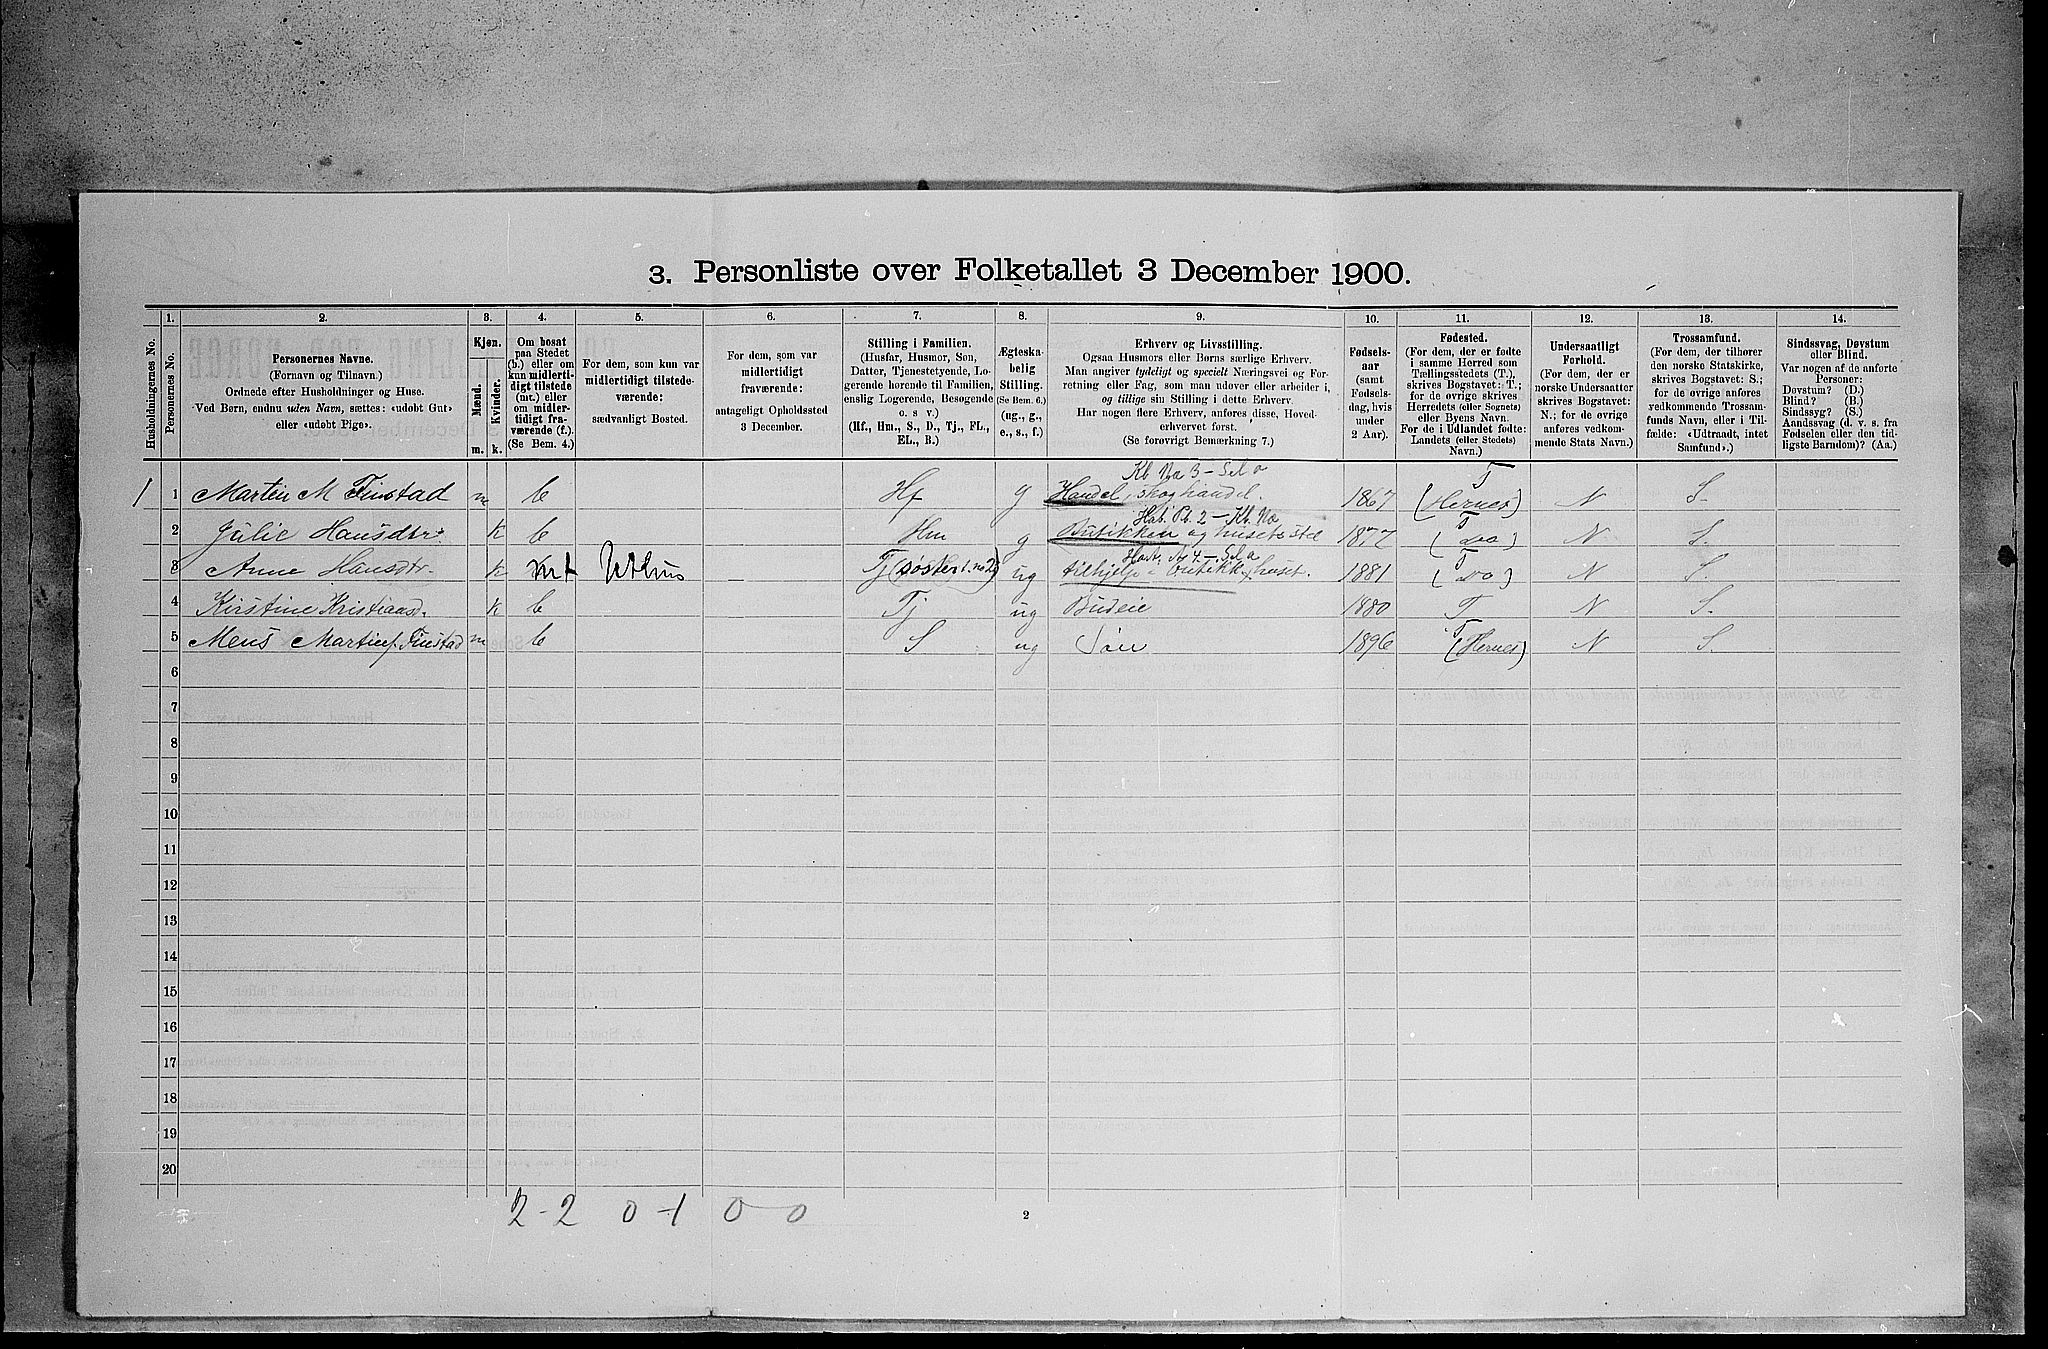 3. Personliste over Folketallet 3 December 1900.
1. 2. 3. 4. 5. 6. 7. 8. 9. 10. 11. 12. 13. 14.
Husholdningernes No.
Personernes No.
Personernes Navne.
(Fornavn og Tilnavn.)
Ordnede efter Husholdninger og Huse.
Ved Børn, endnu uden Navn, sættes: «udøbt Gut»
eller «udøbt Pige».
Kjøn.
Mænd.
Kvinder.
m. k.
Om bosat
paa Stedet
(b.) eller om
kun midlerti-
digt tilstede
(mt.) eller
om midler-
tidigt fra-
værende (f.).
(Se Bem. 4.)
For dem, som kun var
midlertidigt tilstede-
værende:
sædvanligt Bosted.
For dem, som var
midlertidigt
fraværende:
antageligt Opholdssted
3 December.
Stilling i Familien.
(Husfar, Husmor, Søn,
Datter, Tjenestetyende, Lo-
gerende hørende til Familien,
enslig Logerende, Besøgende
o. s. v.)
(Hf., Hm., S., D., Tj., FL.,
EL., B.)
Ægteska-
belig
Stilling.
(Se Bem. 6.)
(ug., g.,
e., s., f.)
Erhverv og Livsstilling.
Ogsaa Husmors eller Børns særlige Erhverv.
Man angiver tydeligt og specielt Næringsvei og For-
retning eller Fag, som man udøver eller arbeider i,
og tillige sin Stilling i dette Erhverv.
Har nogen flere Erhverv, anføres disse, Hoved-
erhvervet først.
(Se forøvrigt Bemærkning 7.)
Fødsels-
aar
(samt
Fødsels-
dag, hvis
under
2 Aar).
Fødested.
(For dem, der er fødte
i samme Herred som
Tællingsstedets (T.),
skrives Bogstavet: T.;
for de øvrige skrives
Herredets (eller Sognets)
eller Byens Navn.
For de i Udlandet fødte:
Landets (eller Stedets)
Navn.)
Undersaatligt
Forhold.
(For dem, der er
norske Undersaatter
skrives Bogstavet:
N.; for de øvrige
anføres vedkom-
mende Stats Navn.)
Trossamfund.
(For dem, der tilhører
den norske Statskirke,
skrives Bogstavet: S.;
for de øvrige anføres
vedkommende Trossam-
funds Navn, eller i Til-
fælde: «Udtraadt, intet
Samfund».)
Sindssvag, Døvstum
eller Blind.
Var nogen af de anførte
Personer:
Døvstum? (D.)
Blind? (B.)
Sindssyg? (S.)
Aandssvag (d. v. s. fra
Fødselen eller den tid-
ligste Barndom)? (Aa.)
Kb Na 3 – Sel a T
1 1 Martin M Finstad m b Hf g Handel, skoghandel. 1867 (Hernes) N S.
Hab. Pb. 2 – Kb. Na T
2 Julie Hansdtr. k b Hm g Butikken og husets stel 1877 (Do) N S.
Sel a T
3 Anne Hansdtr. k mt Tj (søster t. no 2) ug tilhjelp i butikk, huset. 1881 (Do) N S.
4 Kirstine Kristiansd. k b Tj ug Budeie 1880 T N S.
T
5 Mens Martins. Finstad m b S ug Søn 1896 (Hernes) N S.
6
7
8
9
10
11
12
13
14
15
16
17
18
19
20
2 - 2 0 - 1 0 0
2